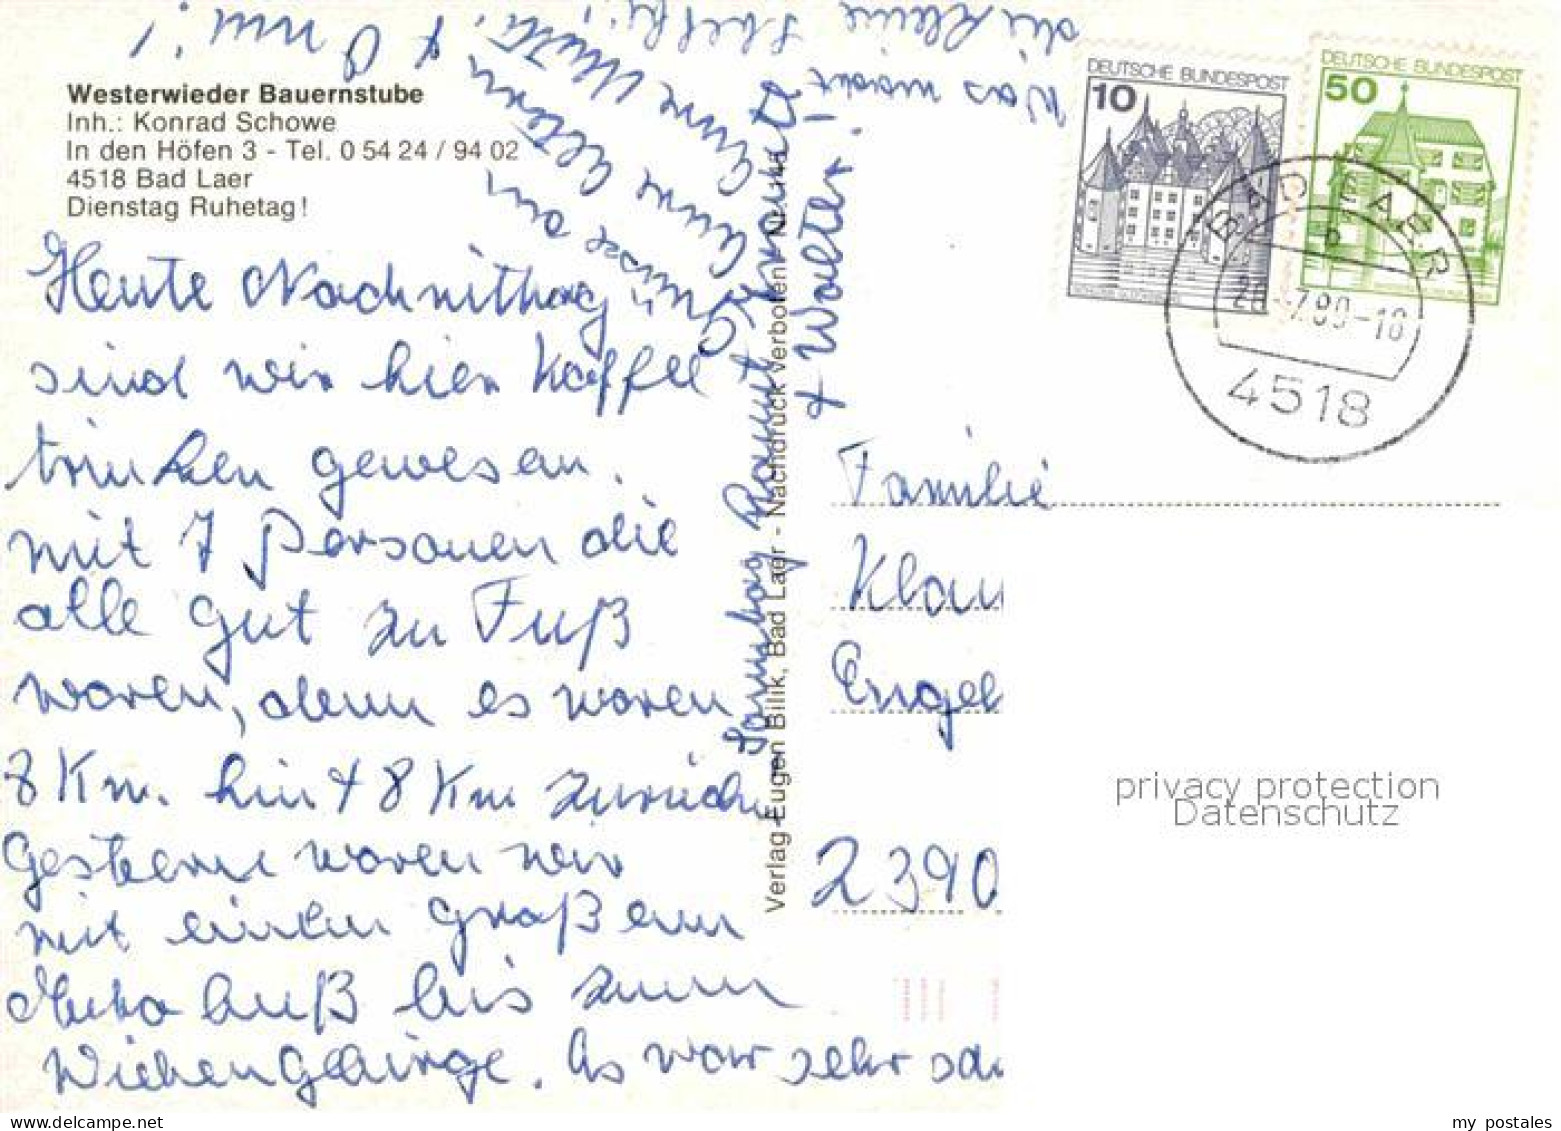 Westerwieder Bauernstube
Inh.: Konrad Schowe
In den Höfen 3 - Tel. 0 54 24 / 94 02
4518 Bad Laer
Dienstag Ruhetag!
Heute Nachmittag
sind wir hier Kaffee
trinken gewesen.
mit 7 Personen die
alle gut zu Fuß
waren, denn es waren
8 Km. hin + 8 Km zurück
Gestern waren wir
mit einem großem
bis zum
Wiehengebirge. Es war sehr
Grüsse an
Eure Eltern
Eure Mutti,
+ Omi!
Was macht
die kleine
+ Walter!
Verlag Eugen Bilik, Bad Laer - Nachdruck verboten Nr.
DEUTSCHE BUNDESPOST
10
DEUTSCHE BUNDESPOST
50
BAD LAER
4518
Familie
Klau
Engel
2390
privacy protection
Datenschutz
my postales